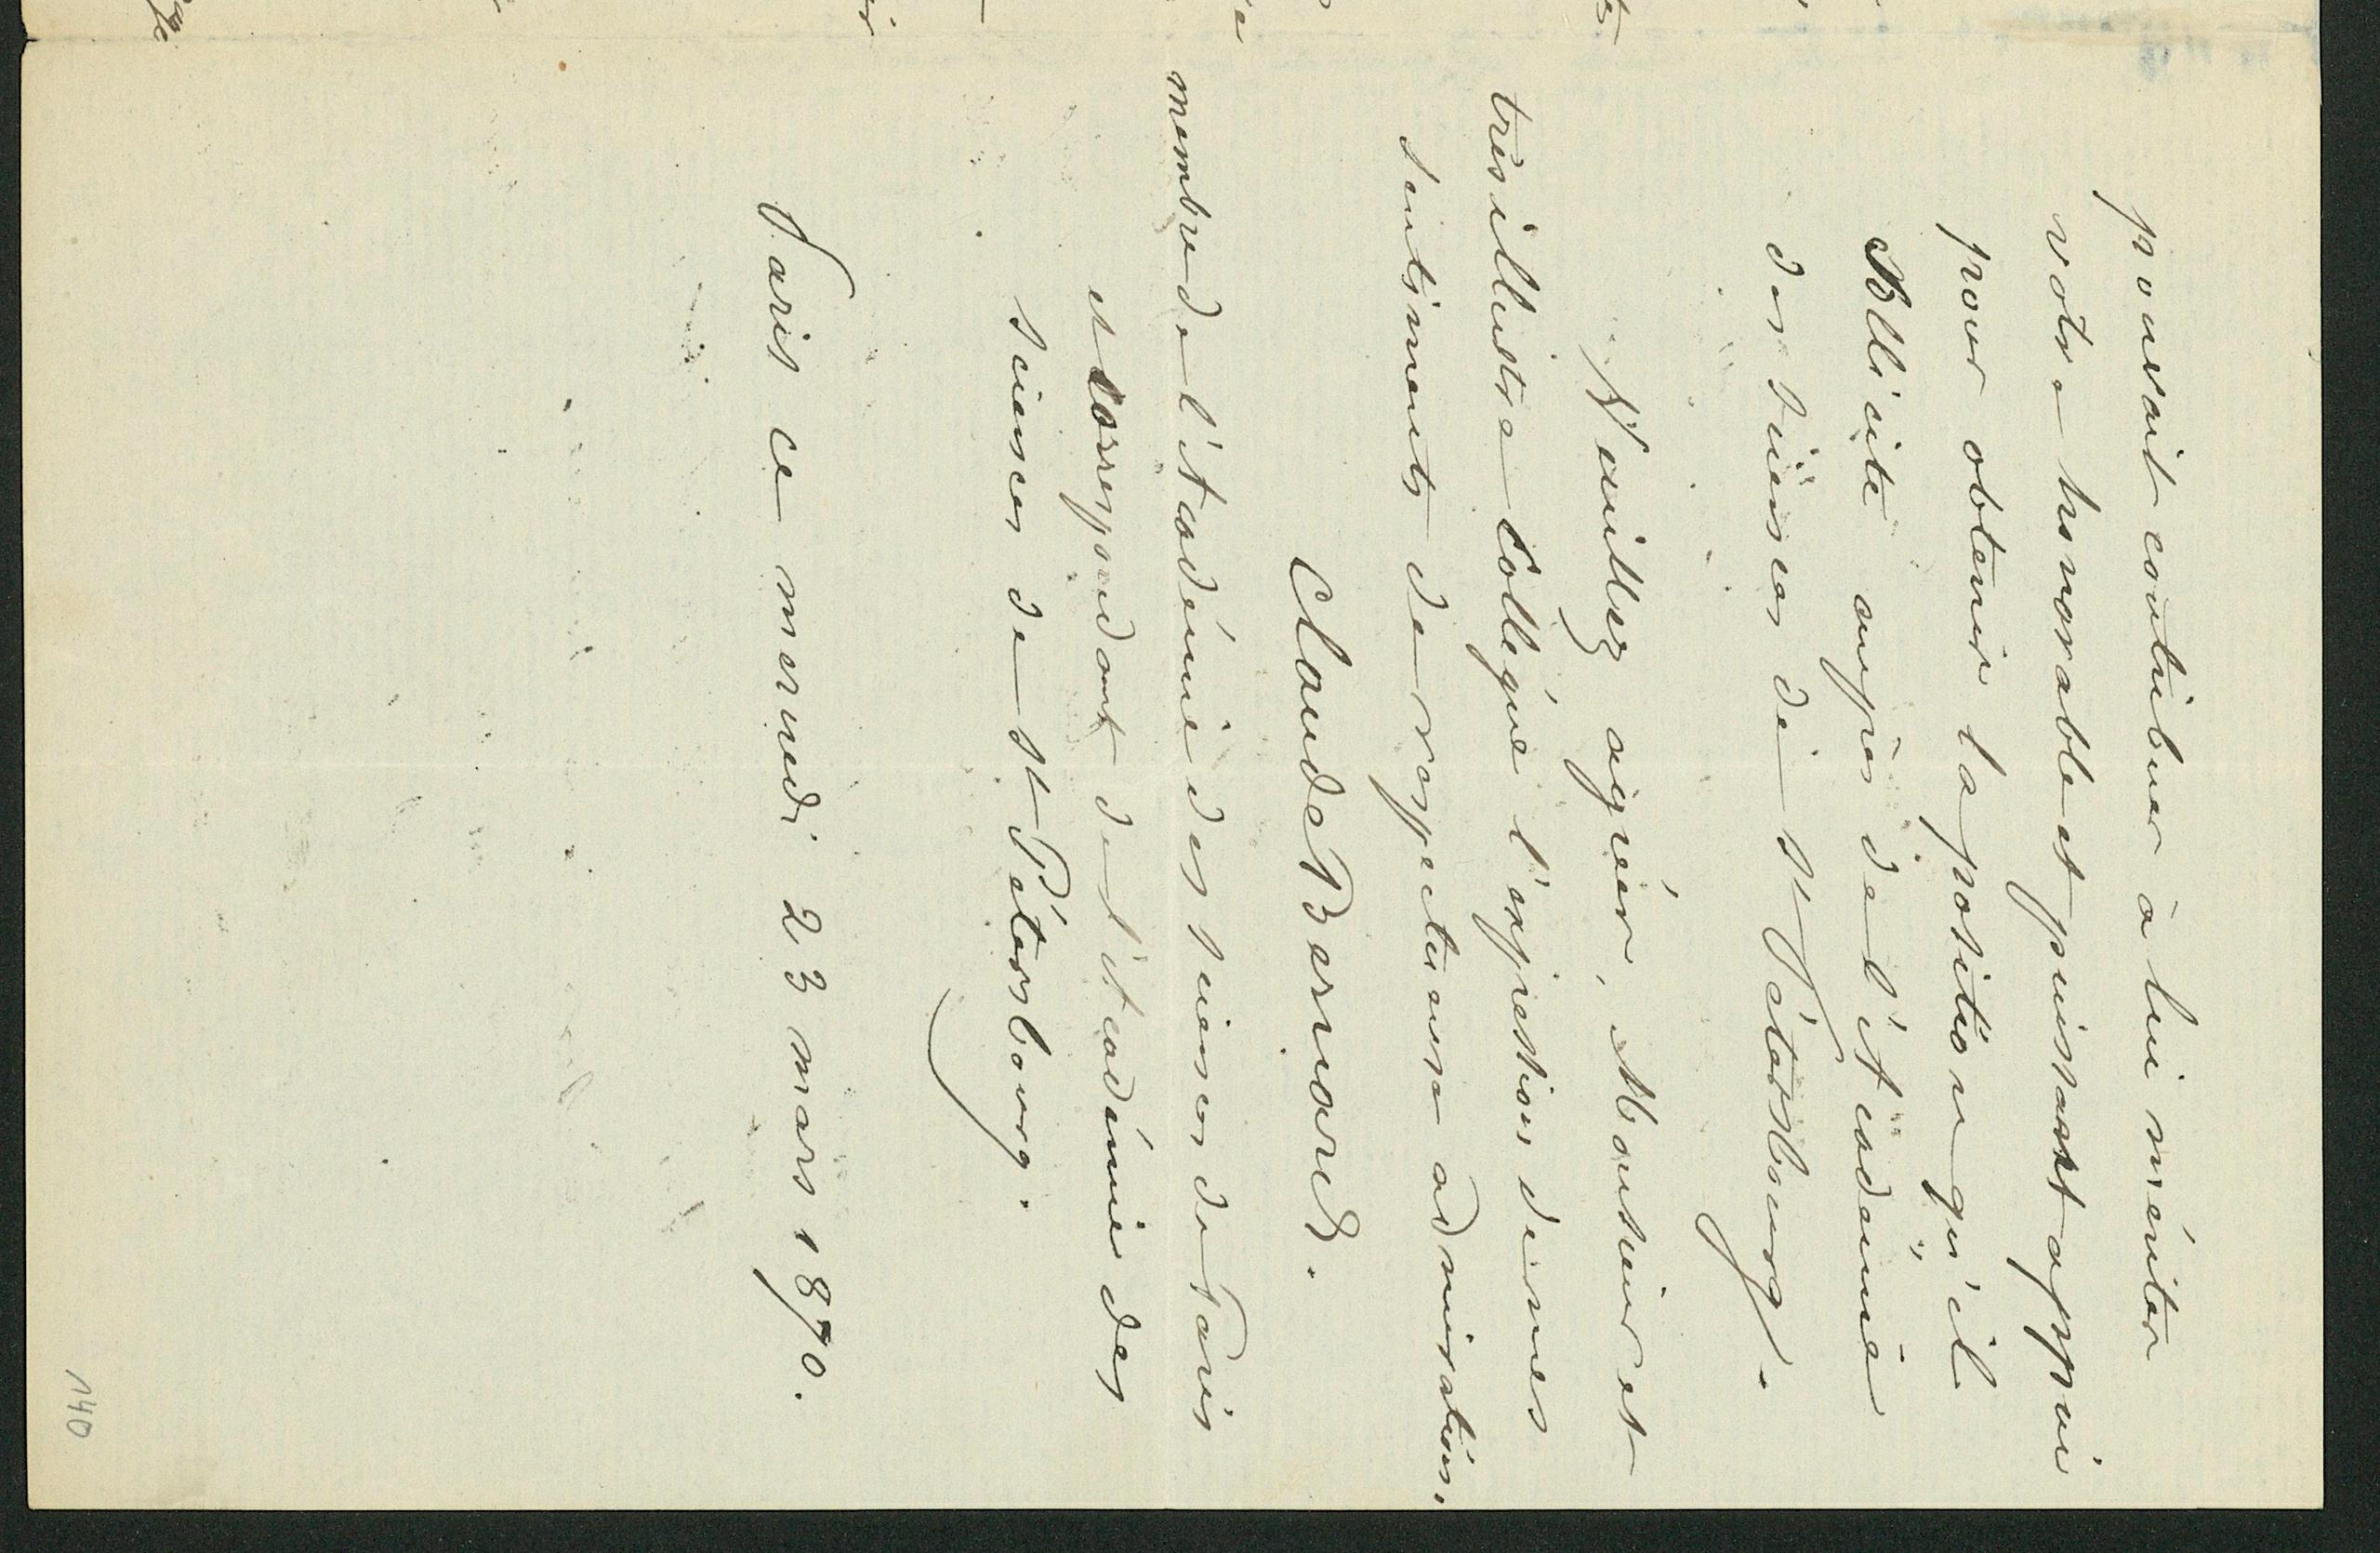 pouvait contribuer à lui mériter
votre honorable et puissant appui
pour obtenir la position qu'il
sollicite auprès de l'Académie
des sciences de St Pétersburg.
Veuillez agréer, Monsieur et
très illustre Collègue l'expression de mes
sentiments de respectueuse admiration.
Claude Bernard.
membre de l'Académie des sciences de Paris
et correspondant de l'Académie des
sciences de St Pétersbourg.
Paris ce mercredi 23 mars 1870.
140